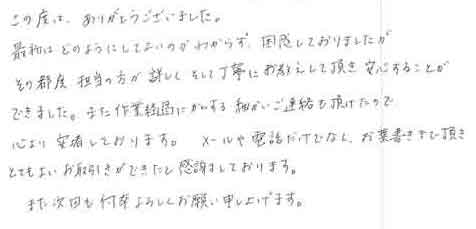 この度は、ありがとうございました。
最初はどのようにしてよいのかわからず、困惑しておりましたが
その都度 担当の方が 詳しく そして丁寧にお教えして頂き 安心することが
できました。また作業経過にかんする 細かいご連絡も頂けたので
心より 安堵しております。 メールや電話だけでなく、お葉書きまで頂き
とてもよいお取引きができたと感謝しております。
また次回も何卒よろしくお願い申し上げます。